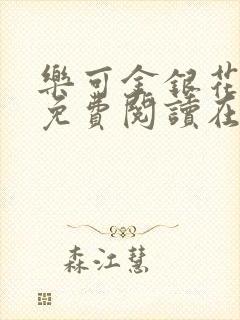 樂可金銀花
免費閱讀在
森江慧